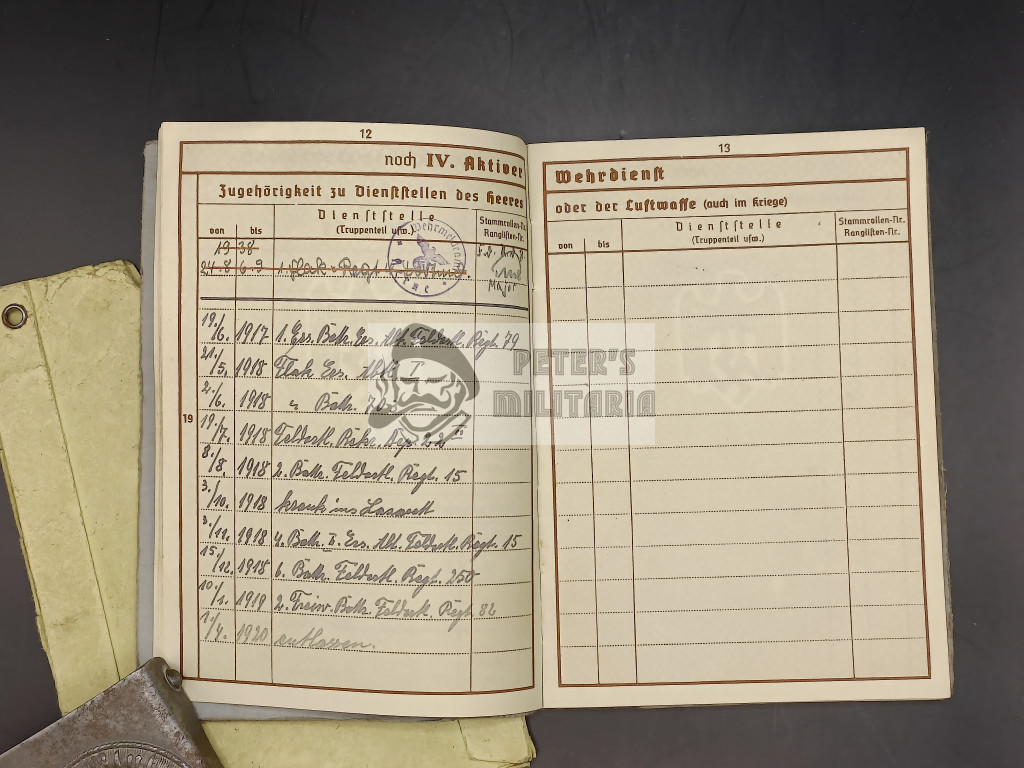 12
noch IV. Aktiver
Zugehörigkeit zu Dienststellen des Heeres
von bis
Dienststelle
(Truppenteil usw.)
Stammrollen-Nr.
Ranglisten-Nr.
19 38
1. Flak-Regt.
Major
19
19./6. 1917 1. Ers. Battr. Ers. Abt. Feldartl. Regt. 79
21./5. 1918 Flak Ers. Abt. I
2./6. 1918 " Battr.
19./7. 1918 Feldartl. Rekr. Dep.
8./8. 1918 2. Battr. Feldartl. Regt. 15
3./10. 1918 krank ins Lazarett
3./11. 1918 4. Battr. I. Ers. Abt. Feldartl. Regt. 15
15./12. 1918 6. Battr. Feldartl. Regt. 250
10./1. 1919 2. Freiw. Battr. Feldart. Regt. 82
1./4. 1920 entlassen.
13
Wehrdienst
oder der Luftwaffe (auch im Kriege)
von bis
Dienststelle
(Truppenteil usw.)
Stammrollen-Nr.
Ranglisten-Nr.
PETER'S
MILITARIA